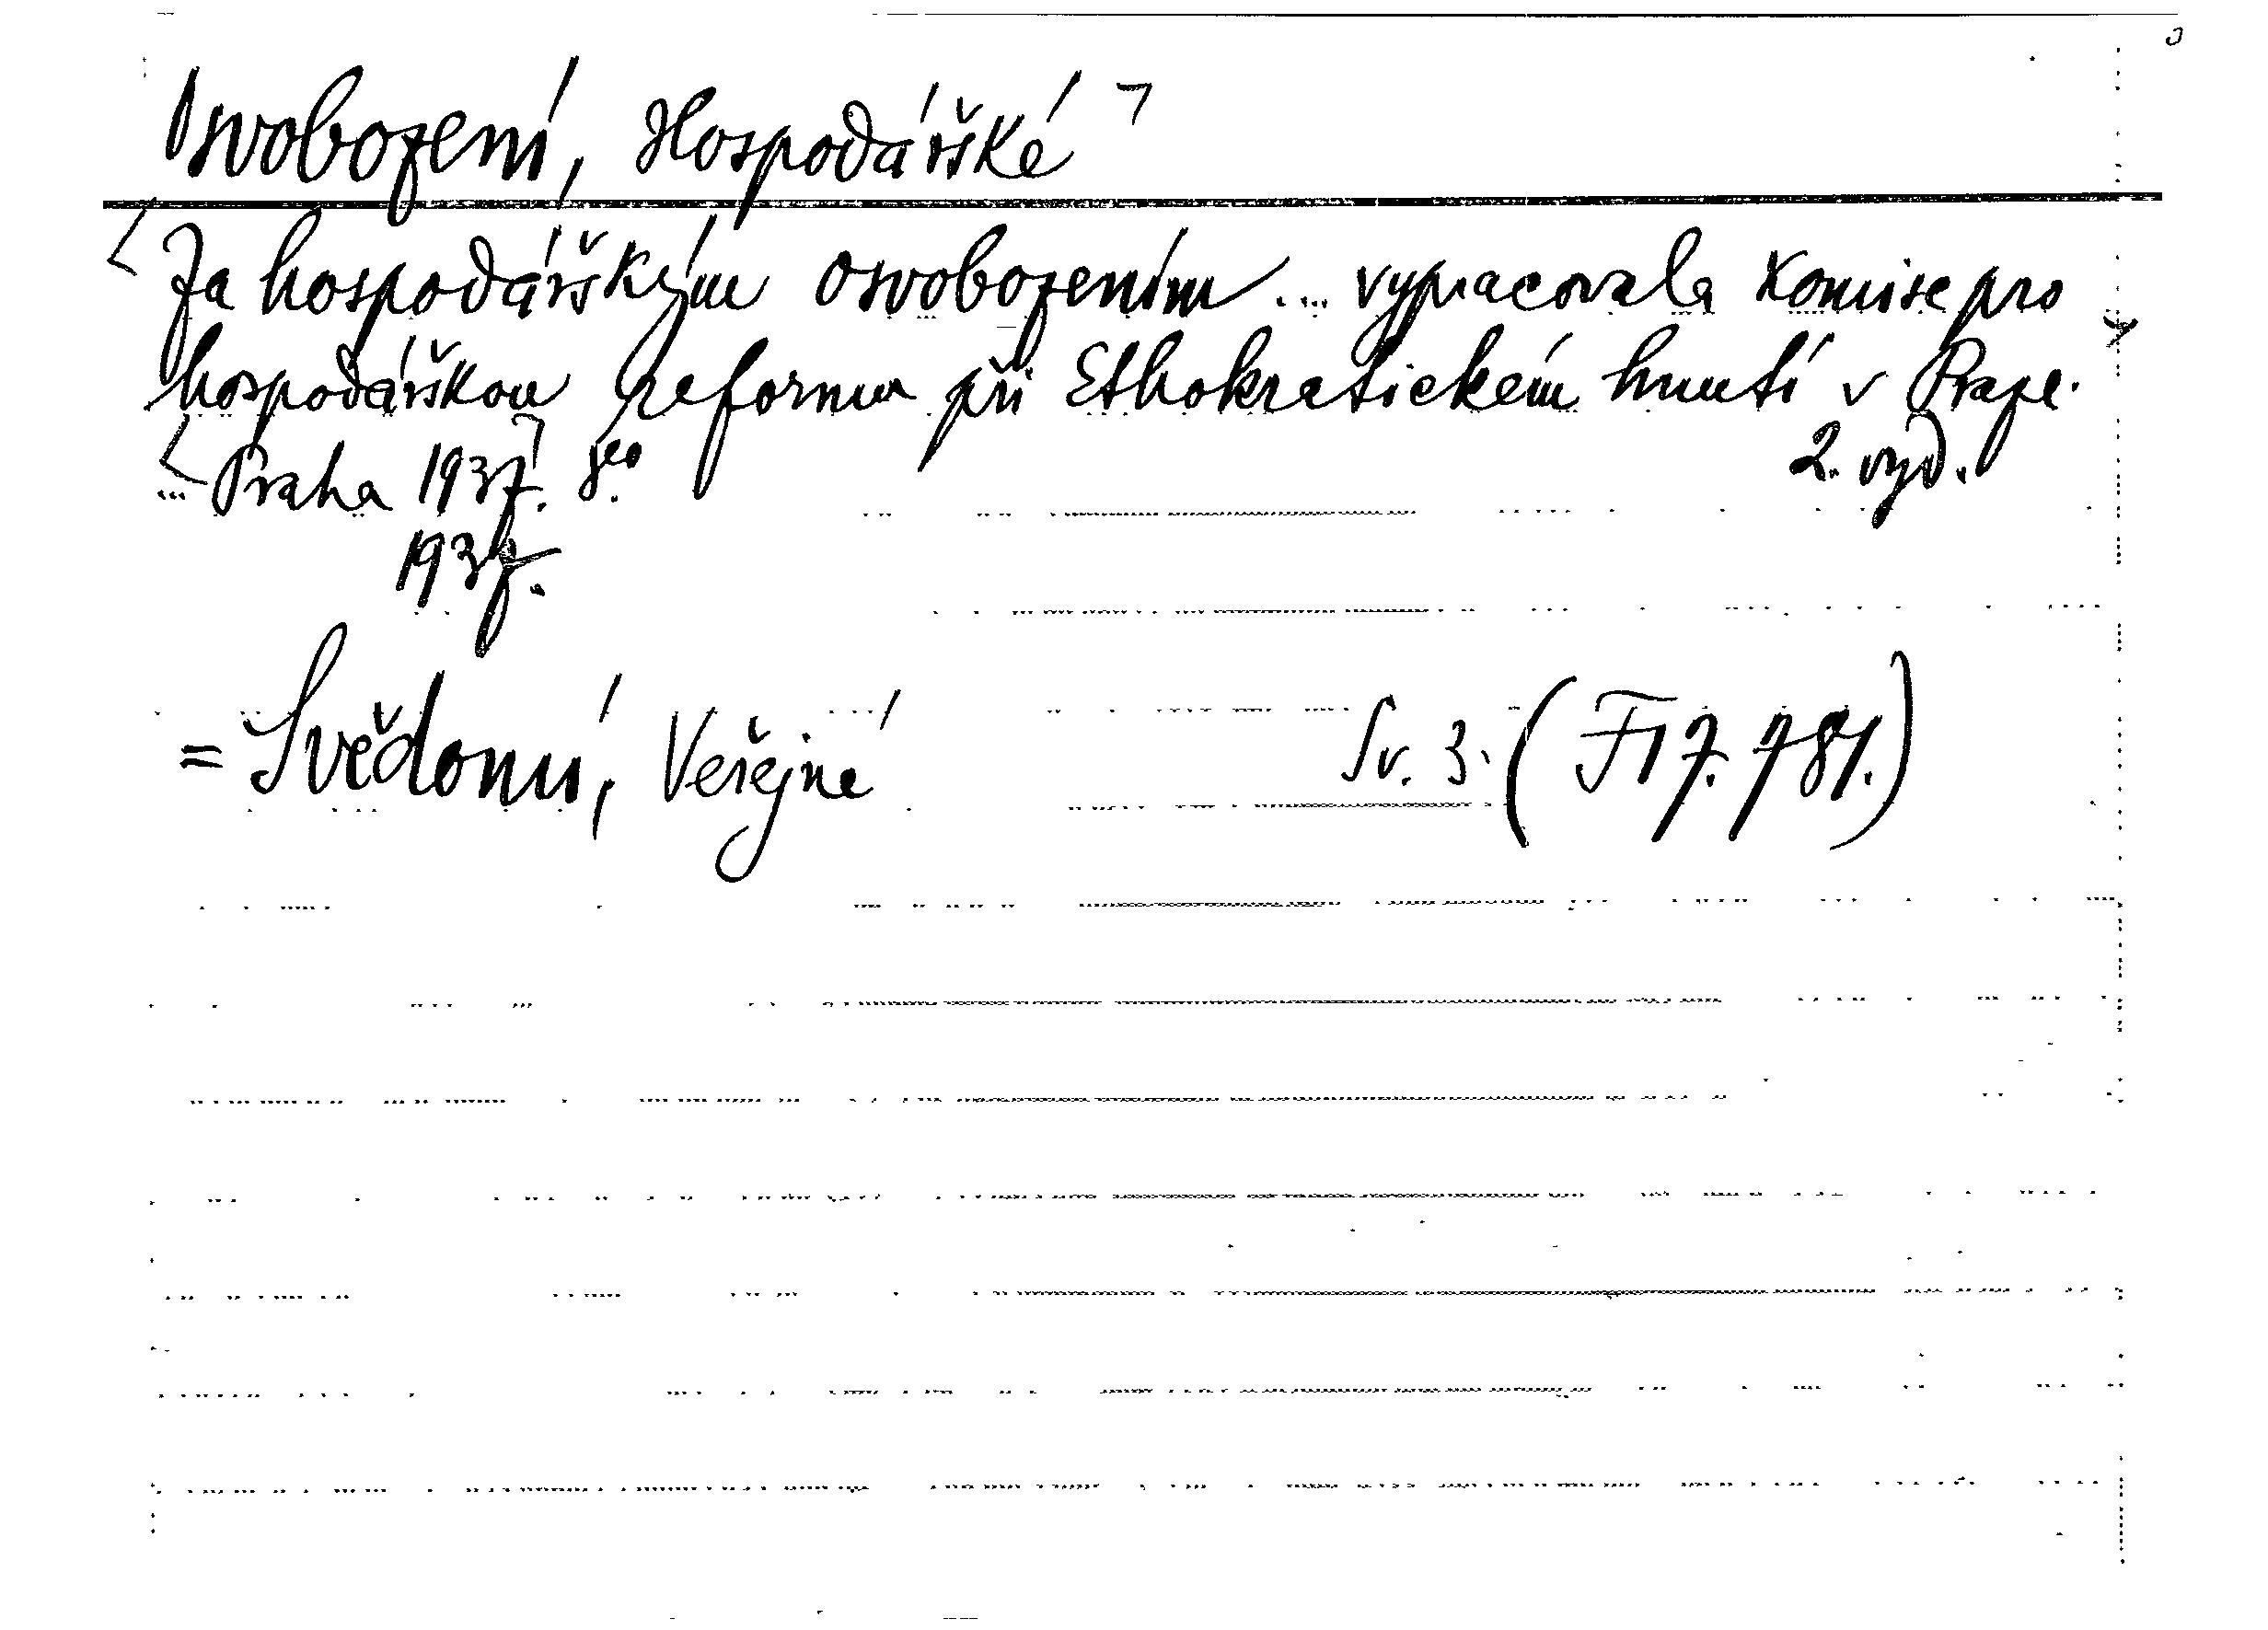 Osvobození, Hospodářské
Za hospodářským osvobozením ... vypracovala Komise pro
hospodářskou reformu při Ethokratickém hnutí v Praze.
2. vyd.
... Praha 1937. 8°
1937.
= Svědomí, Veřejné Sv. 3. (F 17.781.)